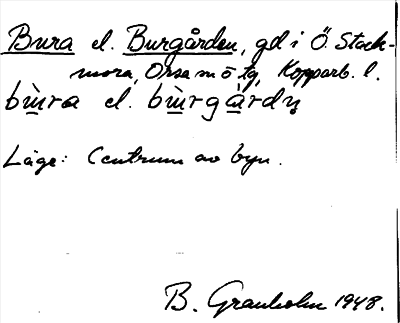 Bura el. Burgården, gd i Ö. Stack-
mora, Orsa m ö tg, Kopparb. l.
bùra el. bùrgàrdn̥
Läge: Centrum av byn.
B. Granholm 1948.